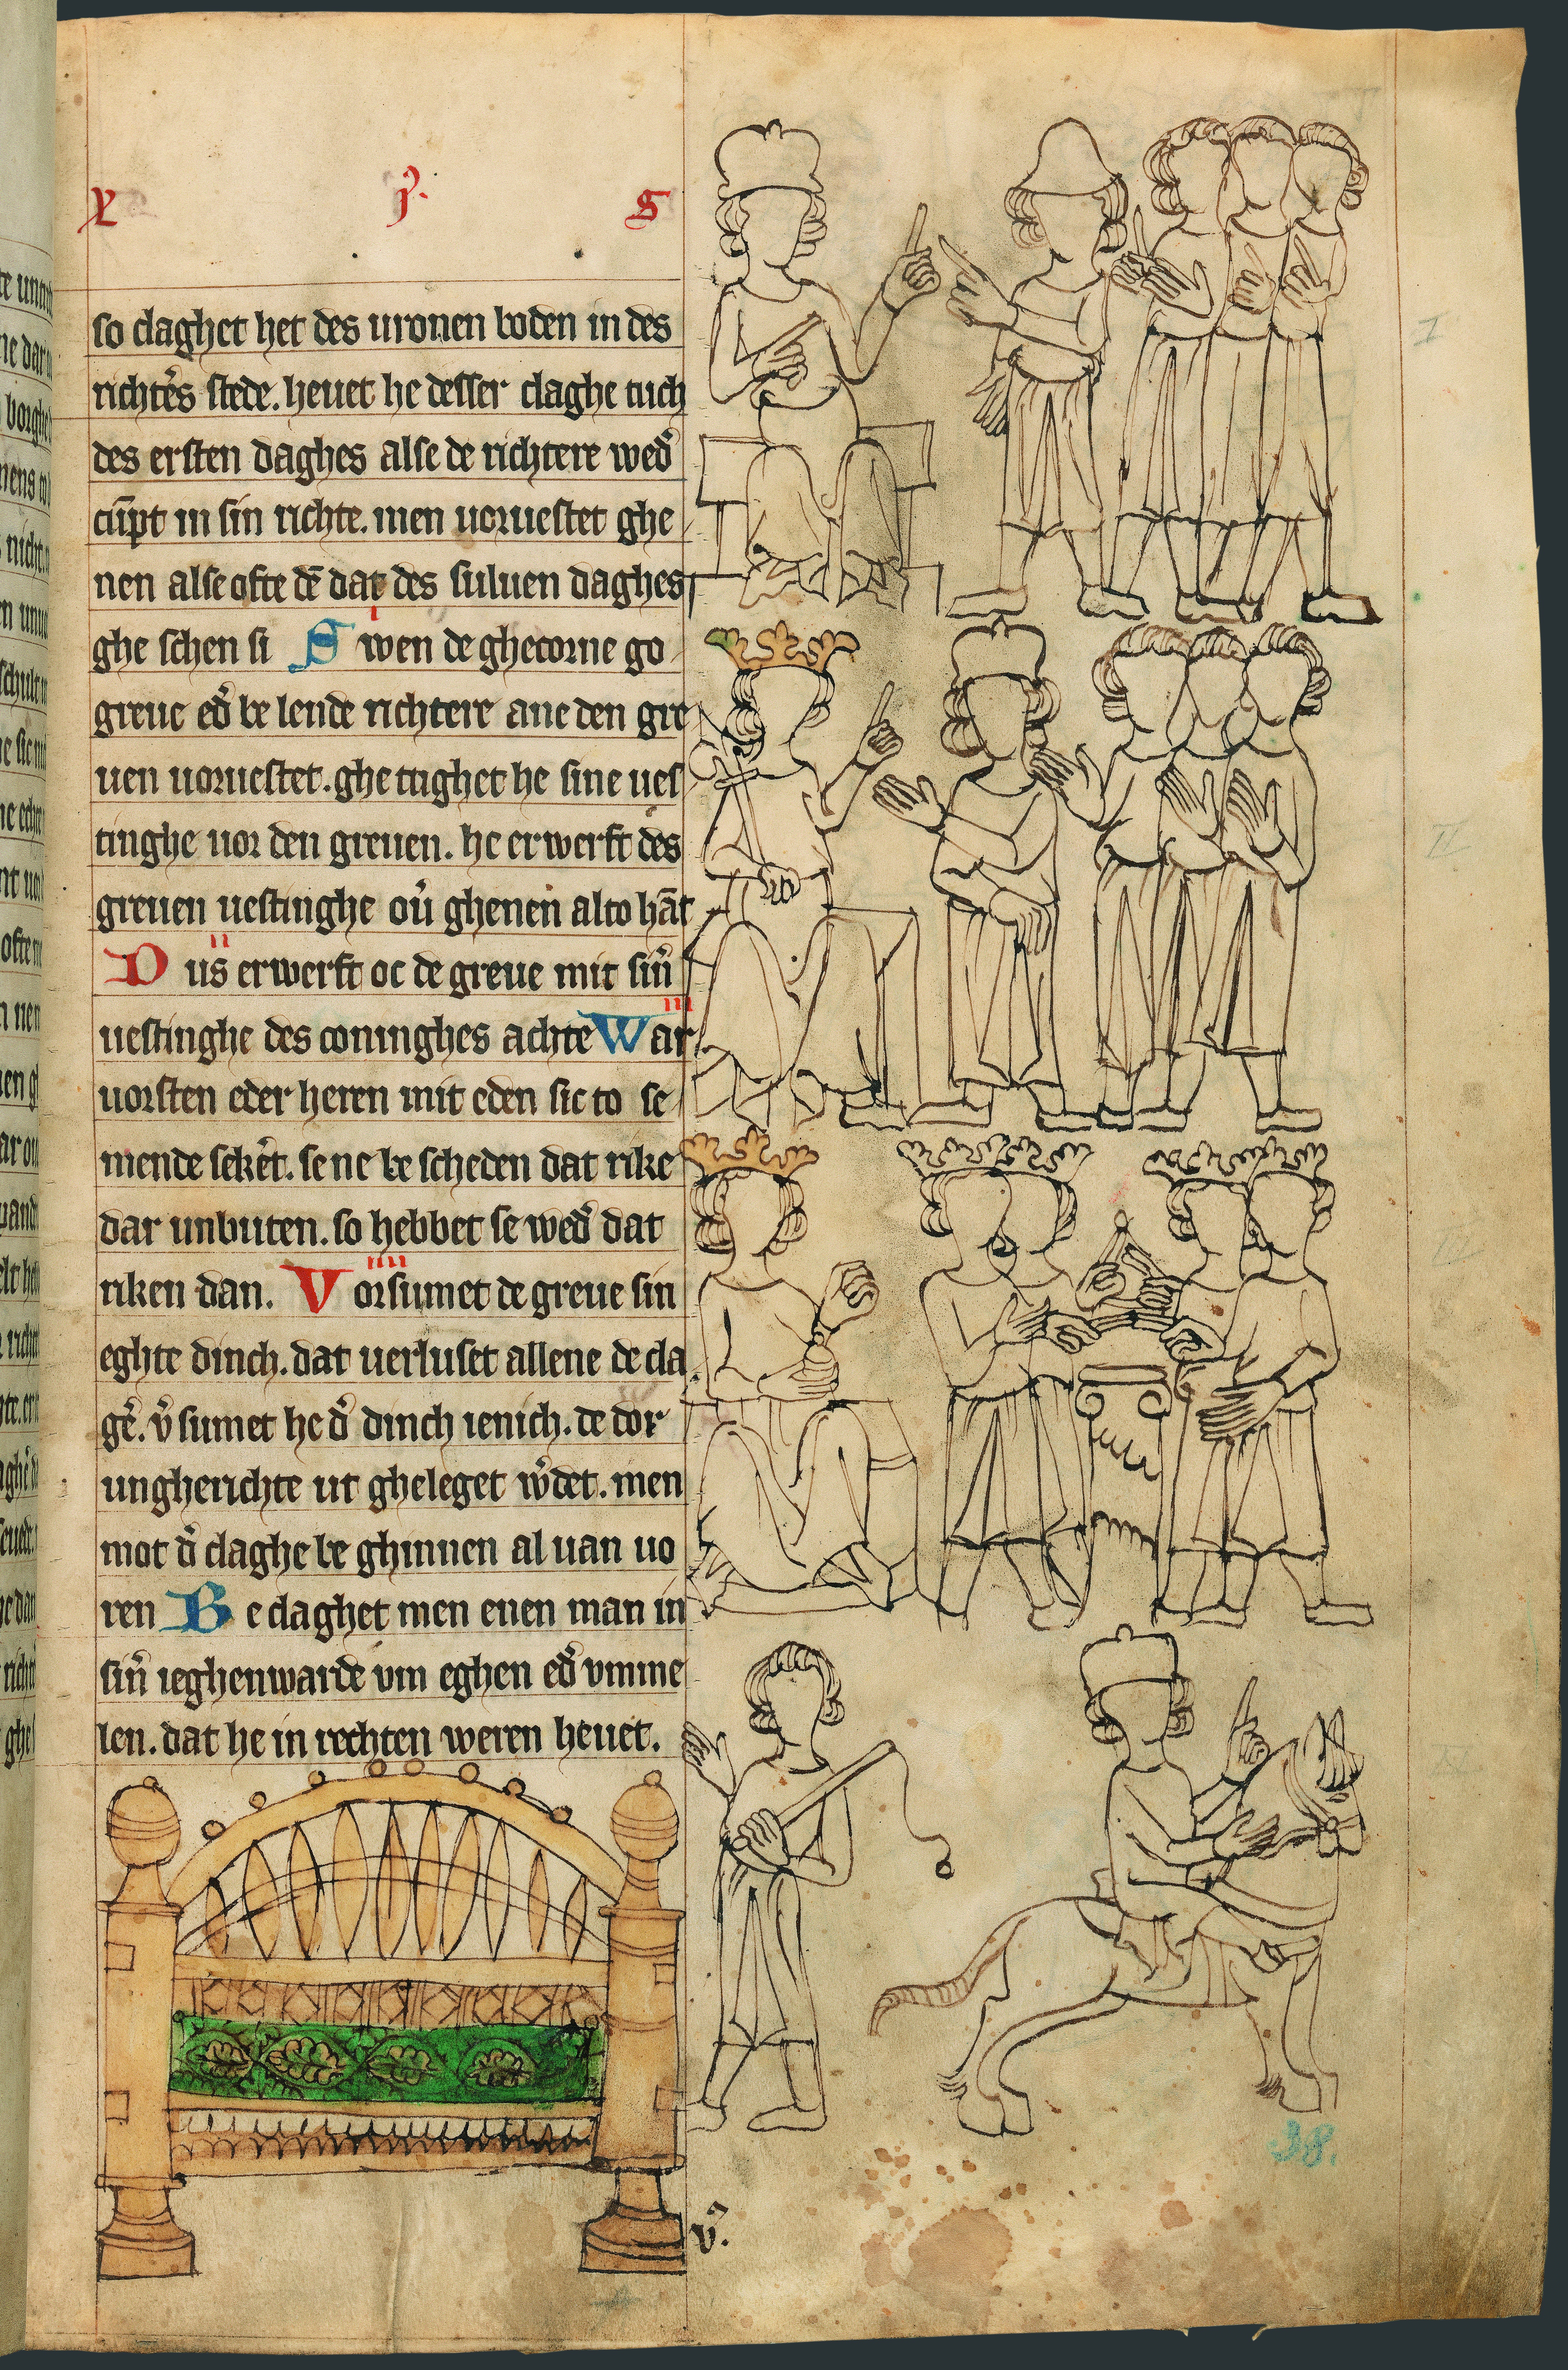 x j. s
so claghet het des uronen boden in des
richtẽs stede. heuet he desser claghe tuch
des ersten daghes alse de richtere wed̉
cūpt in sin richte. men uoruestet ghe
nen alse ofte dē dat des suluen daghes
ghe schen si Swen de ghecorne go
greue ed̉ be lende richtere ane den gre
uen uoruestet. ghe tughet he sine ues
tinghe uor den greuen. he erwerft des
greuen uestinghe oủ ghenen alto hāt
Dus erwerft oc de greue mit sin̉
uestinghe des coninghes achte War
uorsten eder heren mit eden sic to se
mende seke̓t. se ne be scheden dat rike
dar unbuten. so hebbet se wed̉ dat
riken dan. Vorsumet de greue sin
eghte dinch. dat uerluset allene de cla
ge̓. v̉ sumet he d̉ dinch ienich. de dor
ungherichte ut gheleget w̉det. men
mot d̉ claghe be ghinnen al uan uo
ren Be claghet men enen man in
sin̉ ieghenwarde vm eghen ed̉ vmme
len. dat he in rechten weren heuet.
I
II
38.
v̉.